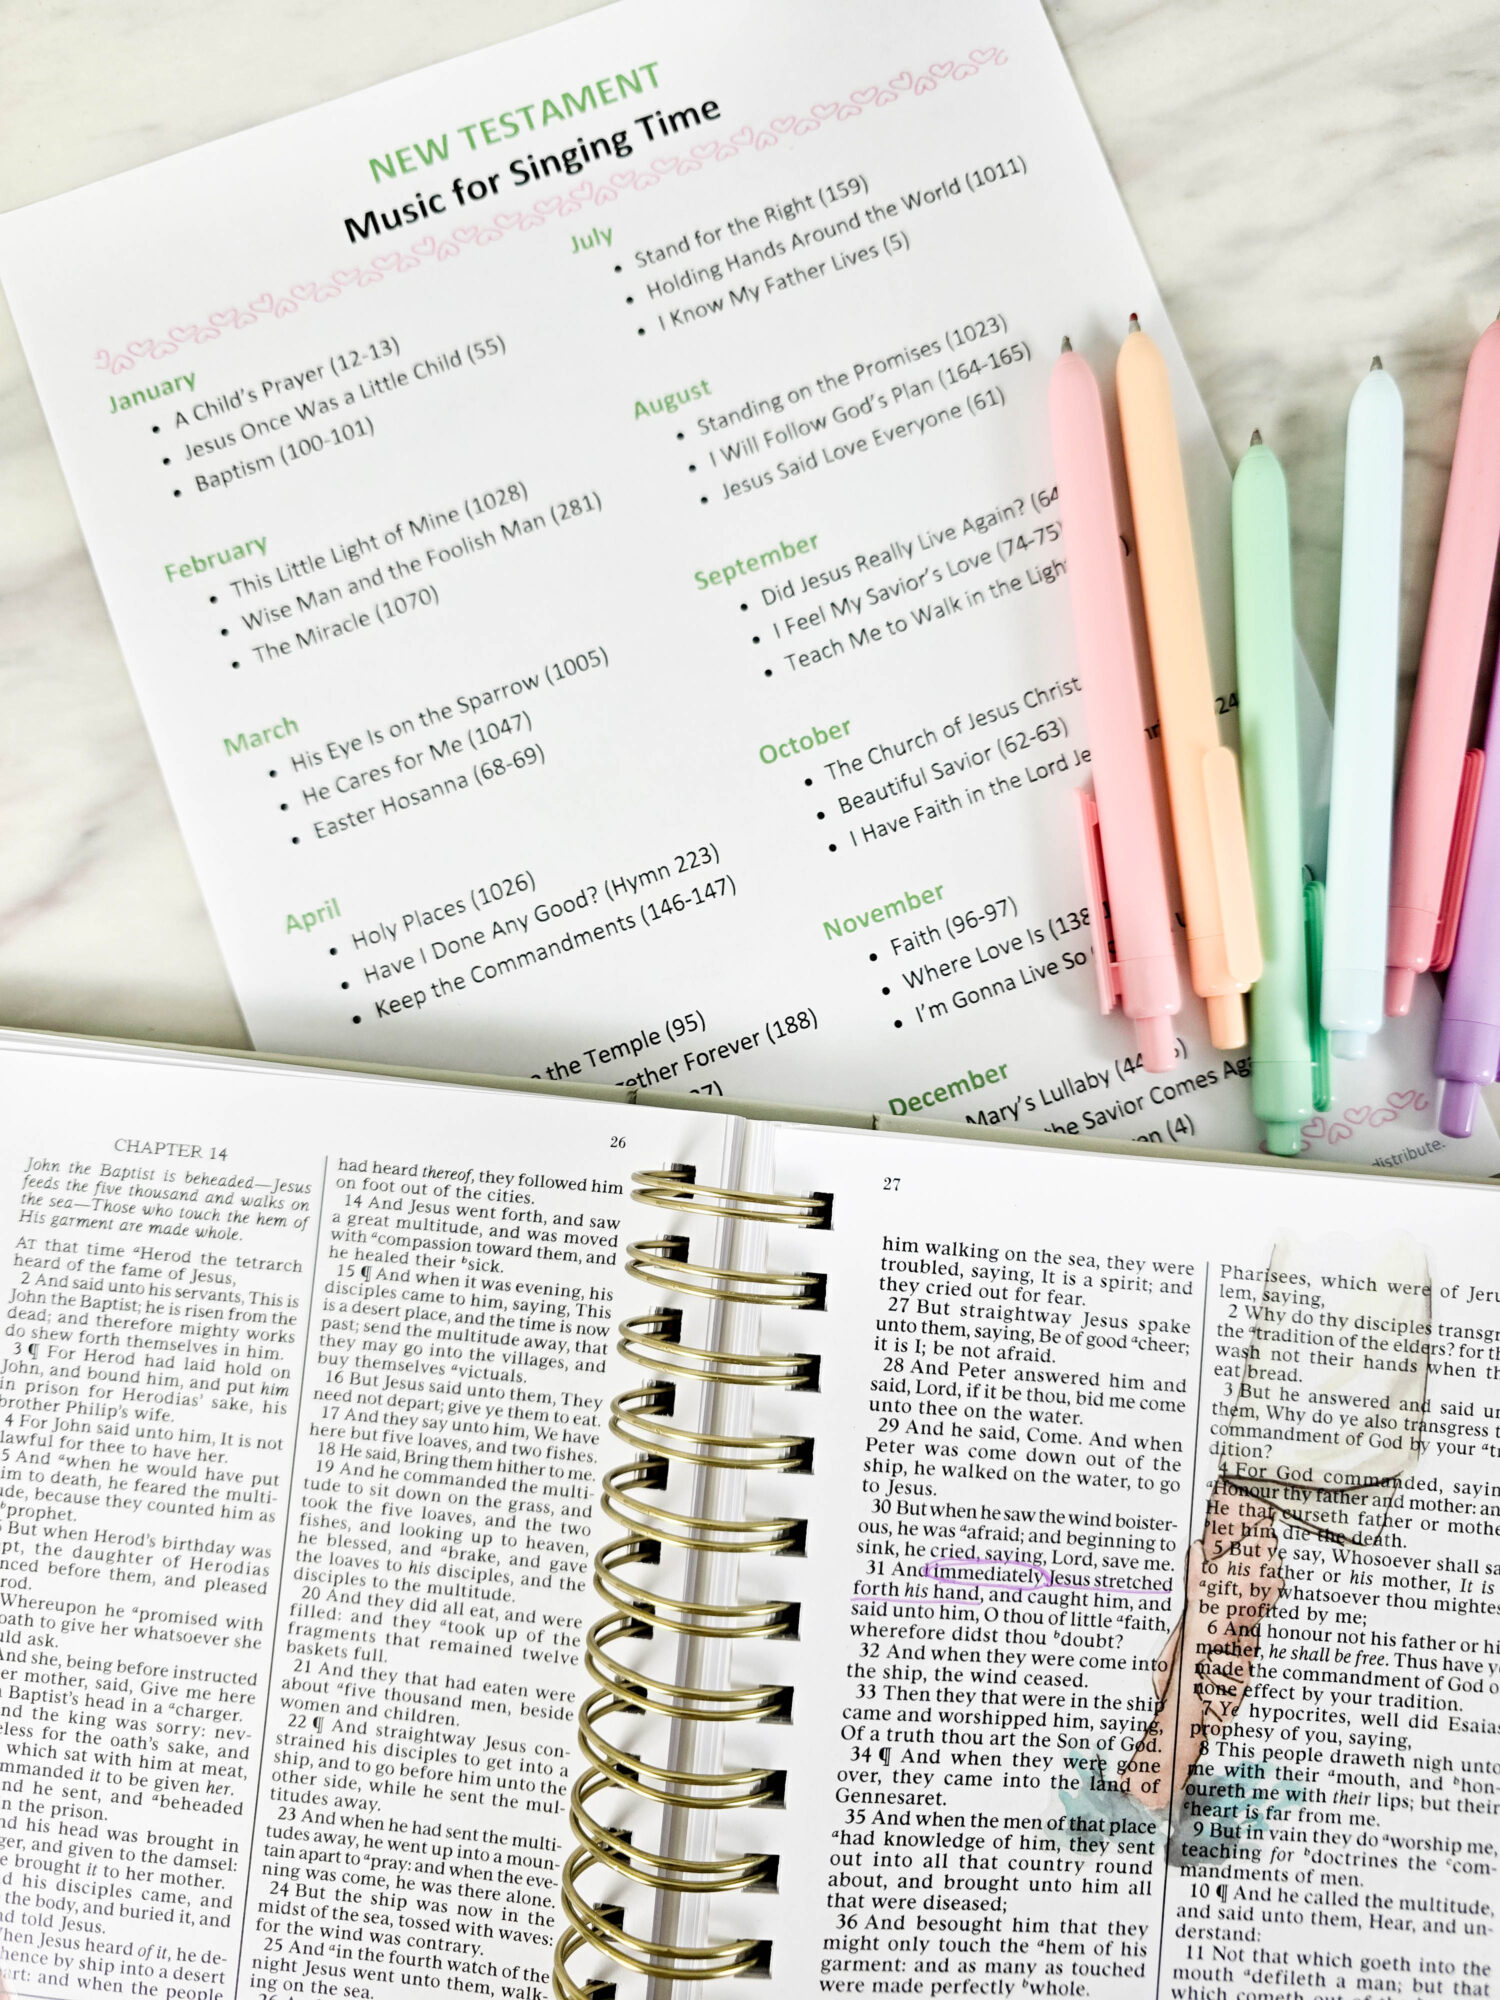 NEW TESTAMENT
Music for Singing Time
January
• A Child's Prayer (12-13)
• Jesus Once Was a Little Child (55)
• Baptism (100-101)
February
• This Little Light of Mine (1028)
• Wise Man and the Foolish Man (281)
• The Miracle (1070)
March
• His Eye Is on the Sparrow (1005)
• He Cares for Me (1047)
• Easter Hosanna (68-69)
April
• Holy Places (1026)
• Have I Done Any Good? (Hymn 223)
• Keep the Commandments (146-147)
the Temple (95)
Forever (188)
July
• Stand for the Right (159)
• Holding Hands Around the World (1011)
• I Know My Father Lives (5)
August
• Standing on the Promises (1023)
• I Will Follow God's Plan (164-165)
• Jesus Said Love Everyone (61)
September
• Did Jesus Really Live Again? (64
• I Feel My Savior's Love (74-75)
• Teach Me to Walk in the Light
October
• The Church of Jesus Christ
• Beautiful Savior (62-63)
• I Have Faith in the Lord
November
• Faith (96-97)
• Where Love Is (138
• I'm Gonna Live So
December
Mary's Lullaby (44
the Savior Comes
(4)
distribute.
26
CHAPTER 14
John the Baptist is beheaded—Jesus
feeds the five thousand and walks on
the sea—Those who touch the hem of
His garment are made whole.
AT that time aHerod the tetrarch
heard of the fame of Jesus,
2 And said unto his servants, This is
John the Baptist; he is risen from the
dead; and therefore mighty works
do shew forth themselves in him.
3 ¶ For Herod had laid hold on
John, and bound him, and put him
in prison for Herodias' sake, his
brother Philip's wife.
4 For John said unto him, It is not
lawful for thee to have her.
5 And awhen he would have put
him to death, he feared the multi-
because they counted him as
bprophet.
But when Herod's birthday was
the daughter of Herodias
before them, and pleased
Whereupon he apromised with
oath to give her whatsoever she
ask.
And she, being before instructed
her mother, said, Give me here
Baptist's head in a acharger.
And the king was sorry: nev-
for the oath's sake, and
which sat with him at meat,
commanded it to be given her.
And he sent, and abeheaded
in the prison.
And his head was brought in
and given to the damsel:
she brought it to her mother.
And his disciples came, and
the body, and buried it, and
and told Jesus.
When Jesus heard of it, he de-
thence by ship into a desert
apart: and when the people
had heard thereof, they followed him
on foot out of the cities.
14 And Jesus went forth, and saw
a great multitude, and was moved
with acompassion toward them, and
he healed their bsick.
15 ¶ And when it was evening, his
disciples came to him, saying, This
is a desert place, and the time is now
past; send the multitude away, that
they may go into the villages, and
buy themselves avictuals.
16 But Jesus said unto them, They
need not depart; give ye them to eat.
17 And they say unto him, We have
here but five loaves, and two fishes.
18 He said, Bring them hither to me.
19 And he commanded the multi-
tude to sit down on the grass, and
took the five loaves, and the two
fishes, and looking up to heaven,
he blessed, and abrake, and gave
the loaves to his disciples, and the
disciples to the multitude.
20 And they did all eat, and were
filled: and they atook up of the
fragments that remained twelve
baskets full.
21 And they that had eaten were
about afive thousand men, beside
women and children.
22 ¶ And straightway Jesus con-
strained his disciples to get into a
ship, and to go before him unto the
other side, while he sent the mul-
titudes away.
23 And when he had sent the multi-
tudes away, he went up into a moun-
tain apart to apray: and when the eve-
ning was come, he was there alone.
24 But the ship was now in the
midst of the sea, tossed with waves:
for the wind was contrary.
25 And ain the fourth watch of the
night Jesus went unto them, walk-
ing on the sea.
27
him walking on the sea, they were
troubled, saying, It is a spirit; and
they cried out for fear.
27 But straightway Jesus spake
unto them, saying, Be of good acheer;
it is I; be not afraid.
28 And Peter answered him and
said, Lord, if it be thou, bid me come
unto thee on the water.
29 And he said, Come. And when
Peter was come down out of the
ship, he walked on the water, to go
to Jesus.
30 But when he saw the wind boister-
ous, he was aafraid; and beginning to
sink, he cried, saying, Lord, save me.
31 And immediately Jesus stretched
forth his hand, and caught him, and
said unto him, O thou of little afaith,
wherefore didst thou bdoubt?
32 And when they were come into
the ship, the wind ceased.
33 Then they that were in the ship
came and worshipped him, saying,
Of a truth thou art the Son of God.
34 ¶ And when they were gone
over, they came into the land of
Gennesaret.
35 And when the men of that place
ahad knowledge of him, they sent
out into all that country round
about, and brought unto him all
that were diseased;
36 And besought him that they
might only touch the ahem of his
garment: and as many as touched
were made perfectly bwhole.
Pharisees, which were of
lem, saying,
2 Why do thy disciples
the atradition of the elders? for
wash not their hands when
eat bread.
3 But he answered and said
them, Why do ye also transgress
commandment of God by your
dition?
4 For God commanded,
aHonour thy father and mother:
He that curseth father or
let him die the death.
5 But ye say, Whosoever shall
to his father or his mother, It is
agift, by whatsoever thou
be profited by me;
6 And honour not his father or
mother, he shall be free. Thus have
made the commandment of God
none effect by your tradition.
7 Ye hypocrites, well did Esaias
prophesy of you, saying,
8 This people draweth nigh unto
me with their amouth, and bhon-
oureth me with their lips; but their
cheart is far from me.
9 But in vain they do aworship me,
teaching for bdoctrines the ccom-
mandments of men.
10 ¶ And he called the multitude,
and said unto them, Hear, and un-
derstand:
11 Not that which goeth into the
mouth adefileth a man; but that
which cometh out of